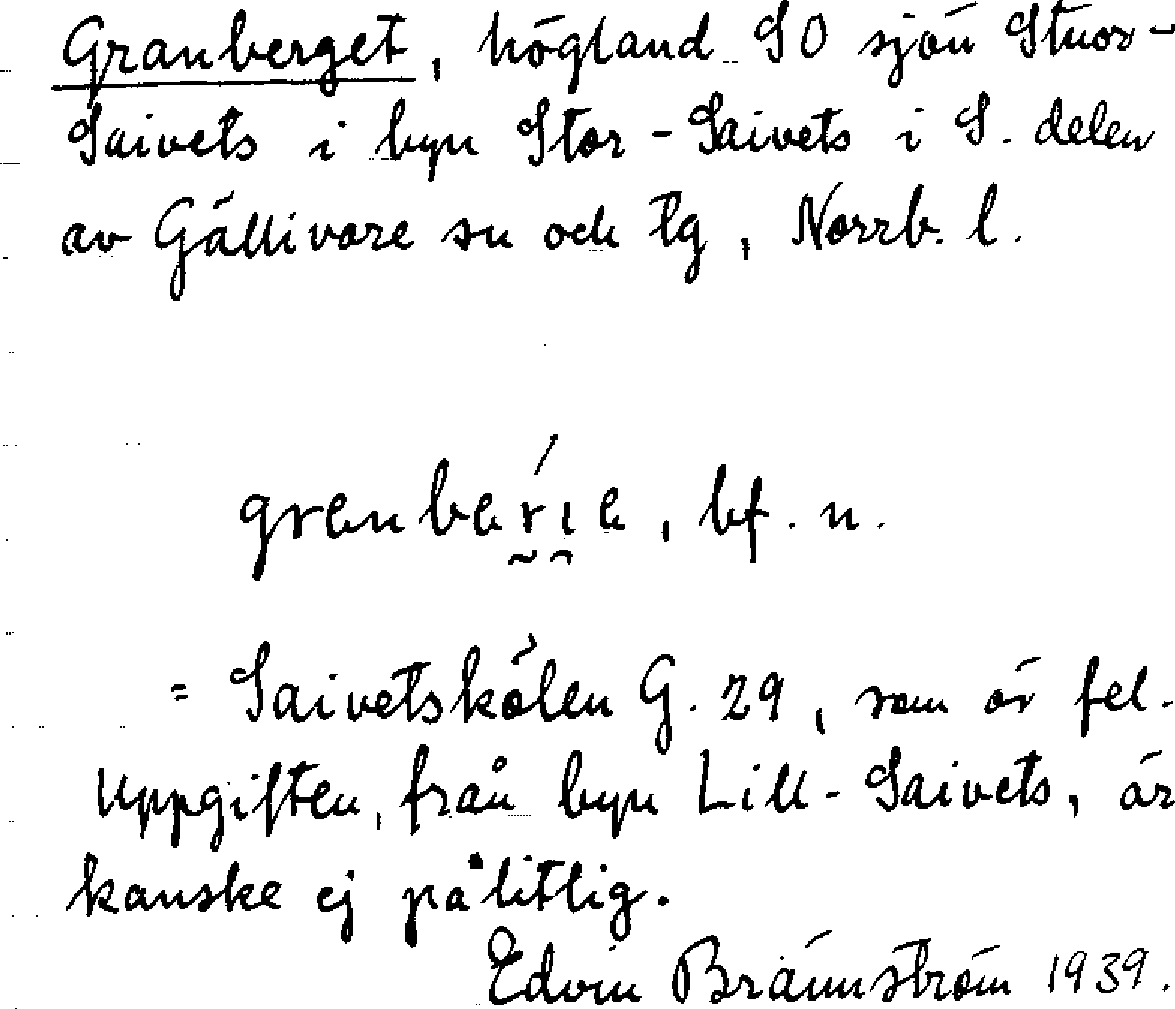 Granberget, högland SO sjön Stuor-
Saivets i byn Stor-Saivets i S. delen
av Gällivare sn och tg, Norrb. l.
bf. n.
= Saivetskölen G. 29, som är fel.
Uppgiften, från byn Lill-Saivets, är
kanske ej pålitlig.
Edvin Brännström 1939.